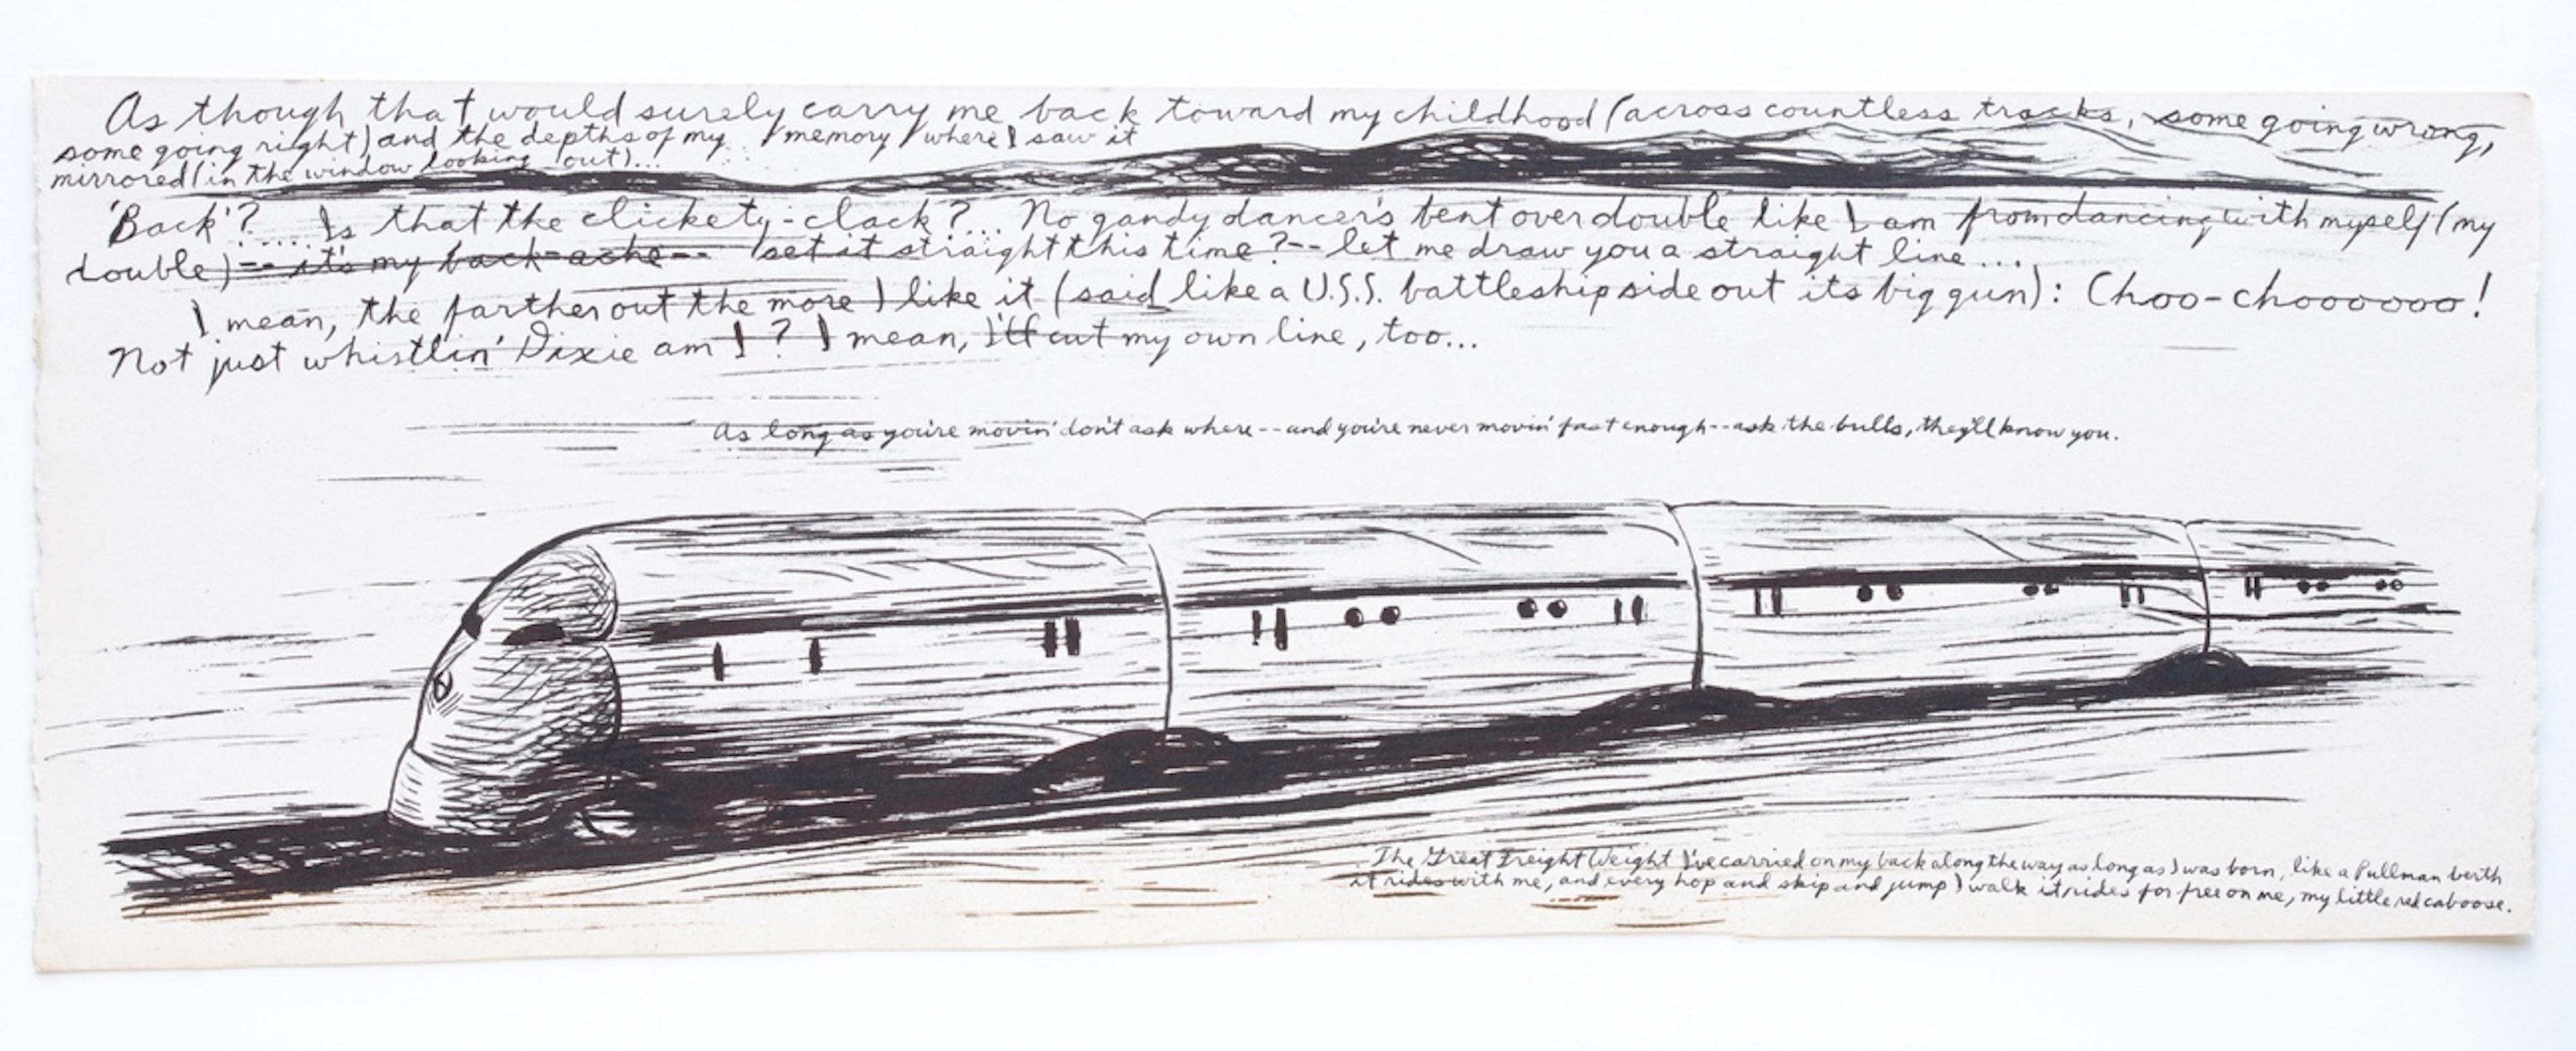 As though that would surely carry me back toward my childhood (across countless tracks, some going wrong,
some going right) and the depths of my memory where I saw it
mirrored (in the window looking out)...
'Back'?..... Is that the clickety-clack?... No gandy dancer's bent over double like I am from dancing with myself (my
double)-- it's my back-ache-- set it straight this time?-- let me draw you a straight line...
I mean, the farther out the more I like it (said like a U.S.S. battleship side out its big gun): Choo-choooooo!
Not just whistlin' Dixie am I? I mean, I'll cut my own line, too...
As long as you're movin' don't ask where--and you're never movin' fast enough--ask the bulls, they'll know you.
The Great Freight Weight I've carried on my back along the way as long as I was born, like a Pullman berth
it rides with me, and every hop and skip and jump I walk it rides for free on me, my little red caboose.